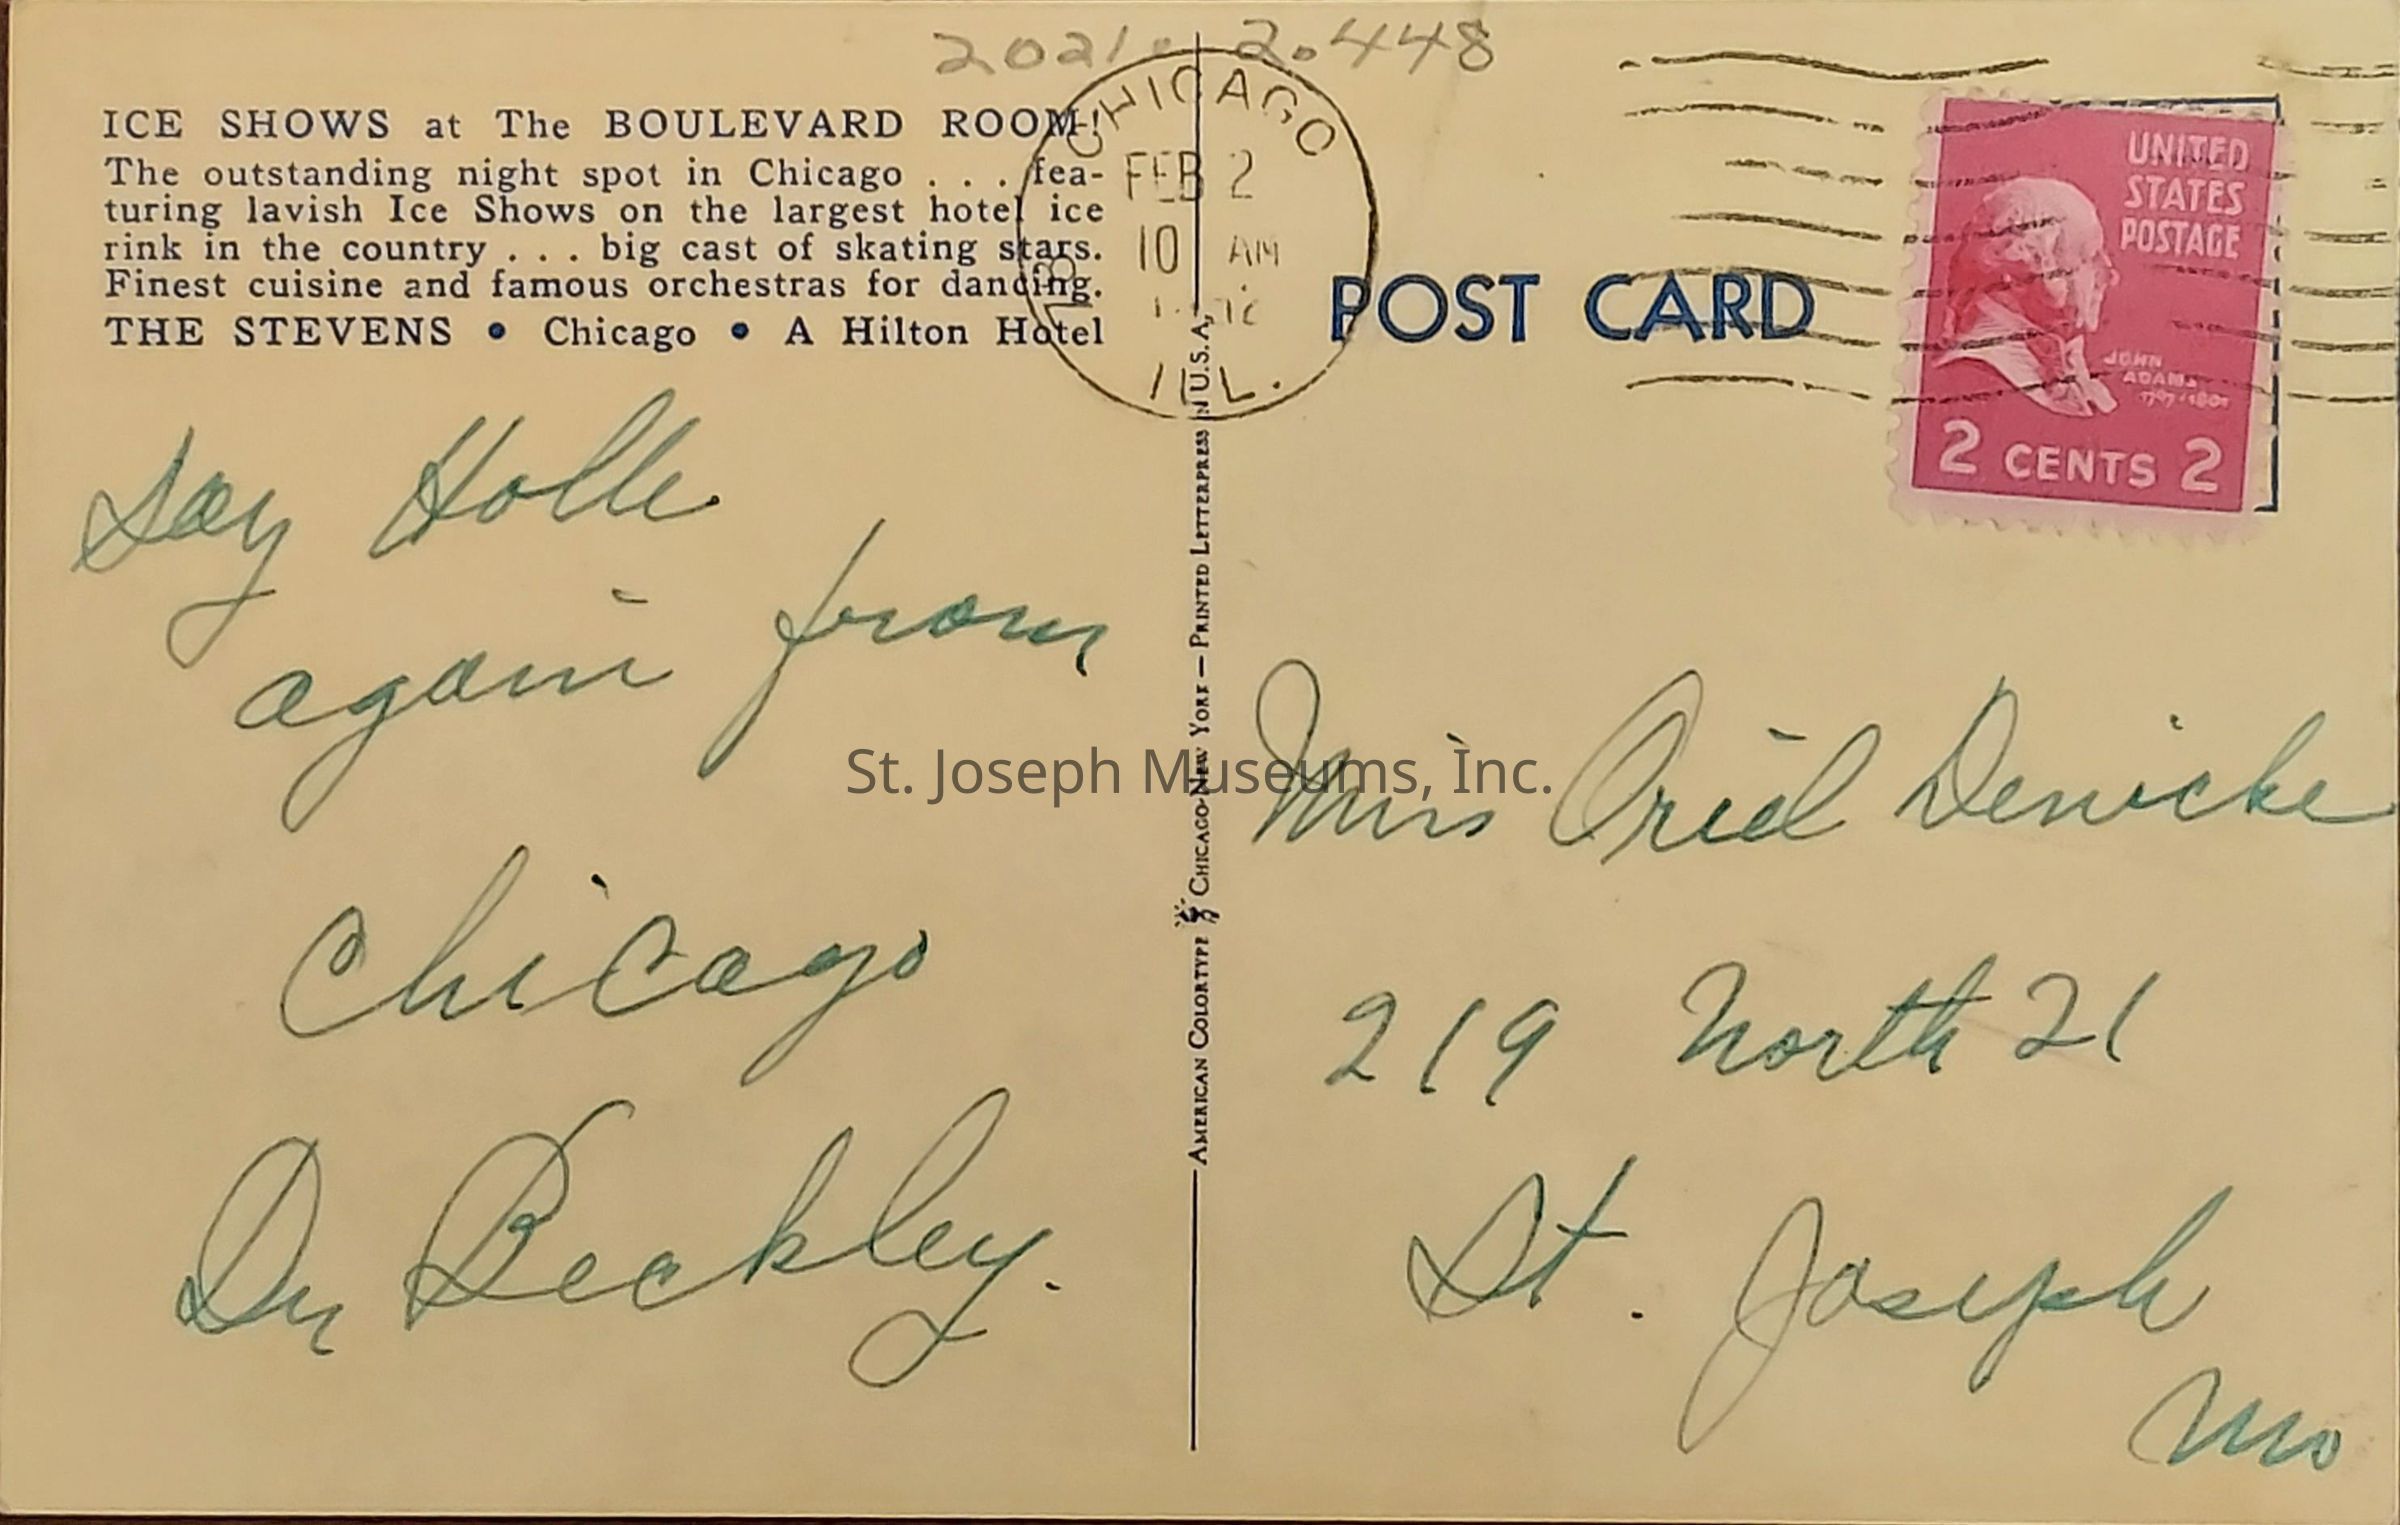 2021. 2.448
ICE SHOWS at The BOULEVARD ROOM!
The outstanding night spot in Chicago . . . fea-
turing lavish Ice Shows on the largest hotel ice
rink in the country . . . big cast of skating stars.
Finest cuisine and famous orchestras for dancing.
THE STEVENS • Chicago • A Hilton Hotel
CHICAGO
FEB 2
10 AM
ILL.
POST CARD
UNITED
STATES
POSTAGE
JOHN
ADAMS
1797-1801
2 CENTS 2
Say Holle
again from
Chicago
Dr Beckley.
AMERICAN COLORTYPE CHICAGO-NEW YORK — PRINTED LETTERPRESS IN U.S.A.
Miss Oriel Denicke
219 North 21
St. Joseph
Mo
St. Joseph Museums, Inc.